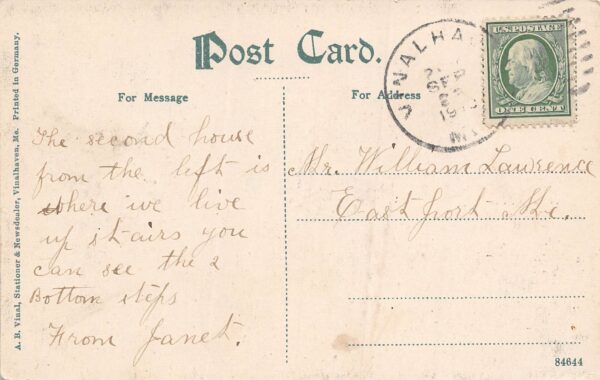 Post Card.
For Message
For Address
A. B. Vinal, Stationer & Newsdealer, Vinalhaven, Me. Printed in Germany.
U.S. POSTAGE
ONE CENT
VINALHA
SEP
The second house
from the left is
where we live
up stairs you
can see the 2
Bottom steps
From Janet.
Mr. William Lawrence
Eastport Me.
84644